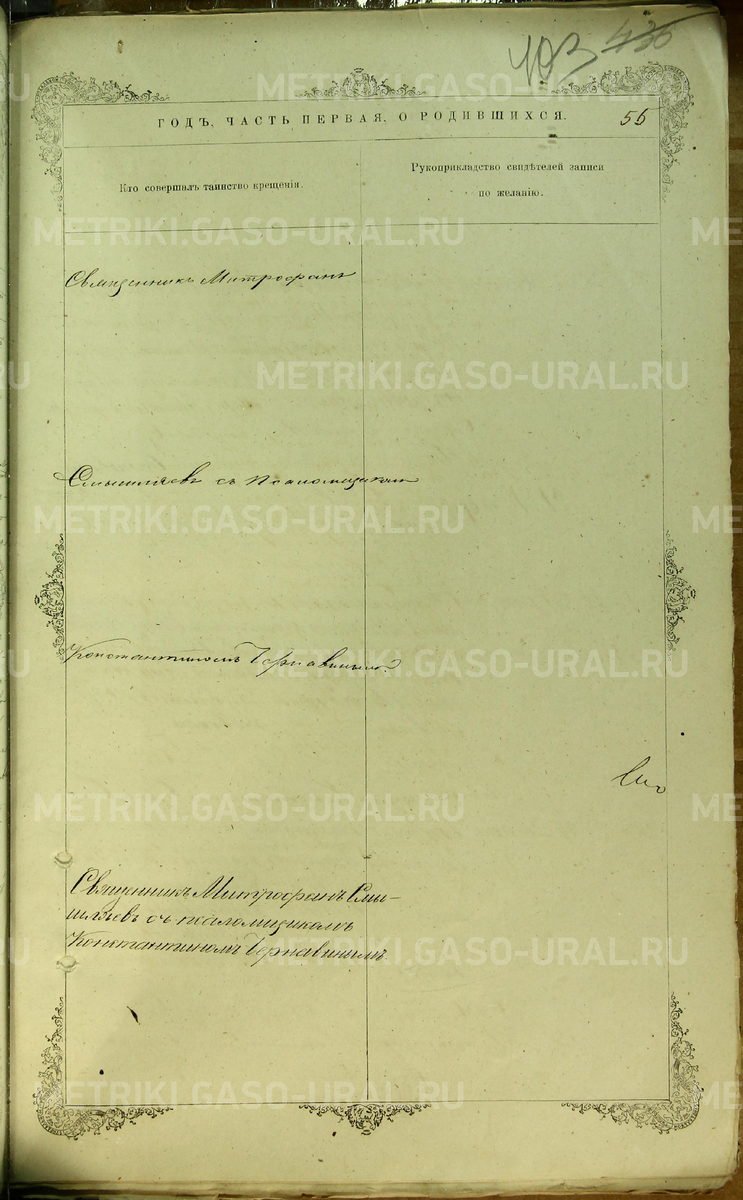 493 436
ГОДЪ, ЧАСТЬ ПЕРВАЯ, О РОДИВШИХСЯ. 56
Кто совершалъ таинство крещенія.
Рукоприкладство свидѣтелей записи
по желанію.
Священникъ Митрофанъ
Смышляевъ съ псаломщикомъ
Константиномъ Чернавинымъ.
Священникъ Митрофанъ Смы-
шляевъ съ псаломщикомъ
Константиномъ Чернавинымъ.
METRIKI.GASO-URAL.RU